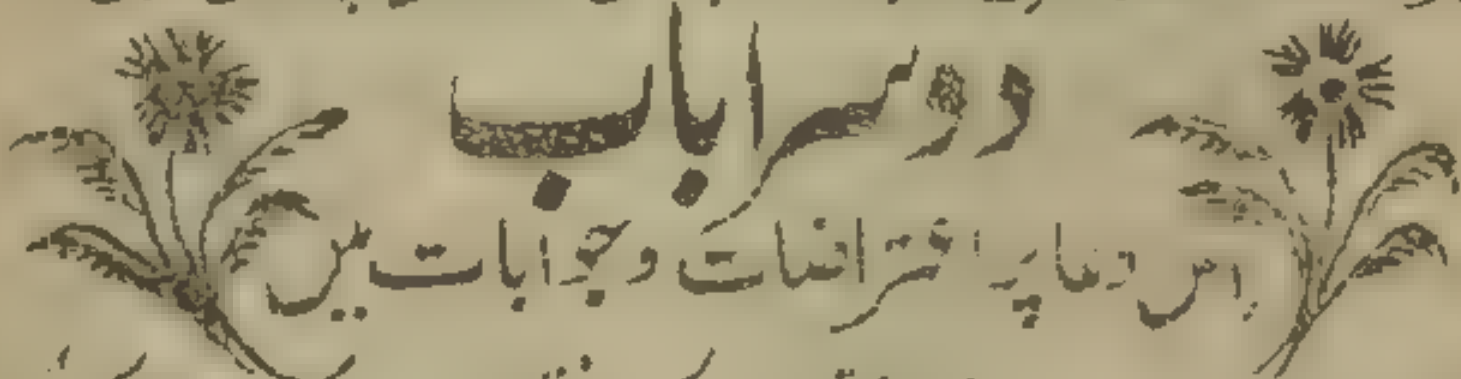 دوسرا باب
اس دعا پر اعتراضات و جوابات میں